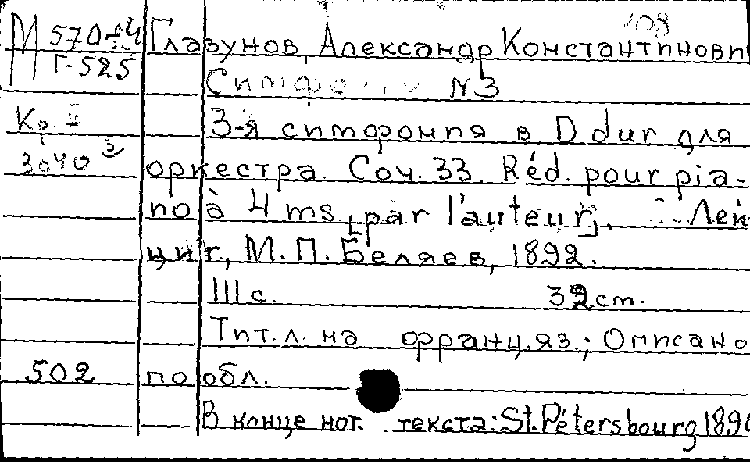 108
М 570-4 Глазунов, Александр Константинови
Г-525
Симфония №3
Кр II 3-я симфония в D dur для
3040 3 оркестра. Соч. 33. Réd. pour pia-
no à 4 ms [par l'auteur]. Лей
циг, М. П. Беляев, 1892.
111 с. 32 cm.
Тит. л. на франц. яз.; Описано
502 по обл.
В конце нот. текста: St. Pétersbourg 1890